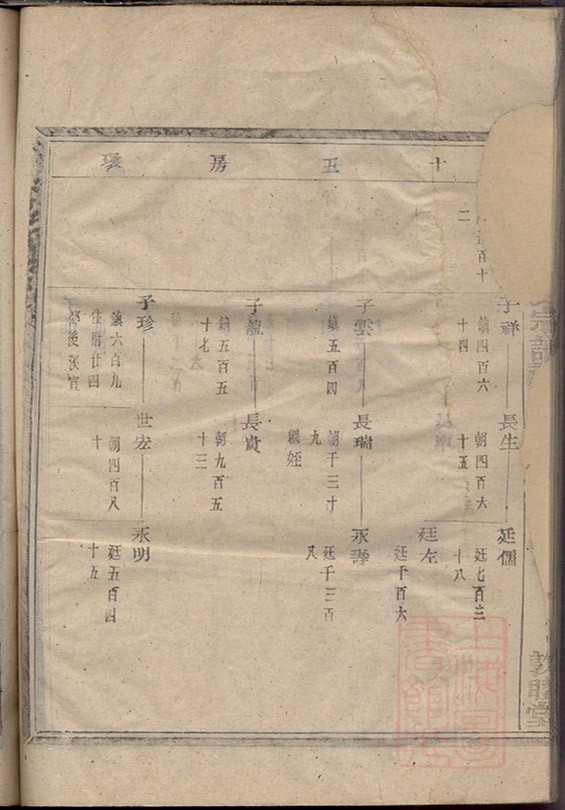 十五房
百十
二
子祥
鎮四百六
十四
長生
朝四百六
十五
廷儒
廷七百三
十八
廷左
廷千百六
子雲
鎮五百四
長瑞
朝千三十
九
繼姪
永壽
廷千三百
八
子龍
鎮五百五
十七
長貴
朝九百五
十三
子珍
鎮六百九
世宏
朝四百八
十
永明
廷五百四
十九
宗譜
敦睦堂
上海圖書館藏